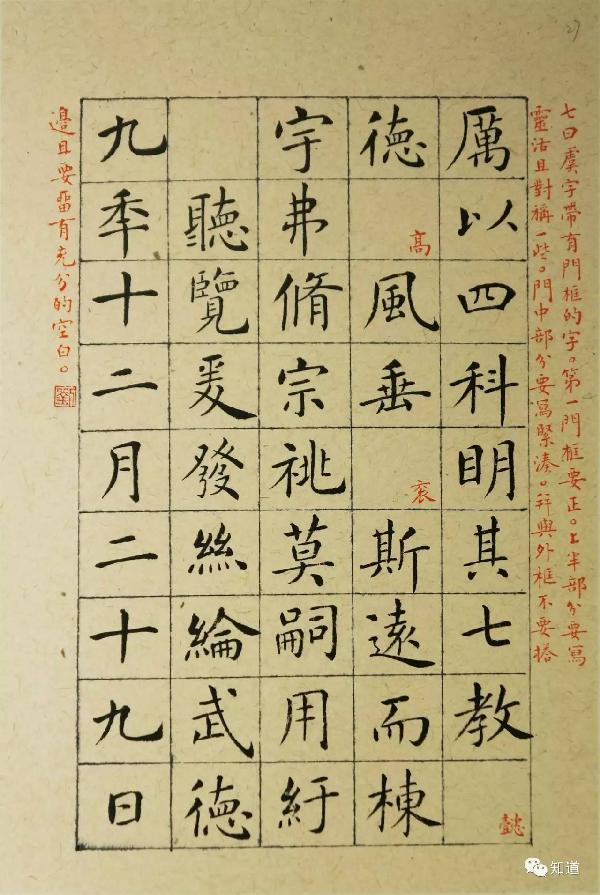 27
七曰虞字帶有門框的字。第一門框要正。上半部分要寫
靈活且對稱一些。門中部分要寫緊湊。並與外框不要搭
厲以四科明其七教懿
德高風垂衮斯遠而棟
宇弗脩宗祧莫嗣用紆
聽覽爰發絲綸武德
九秊十二月二十九日
邊且要留有充分的空白。
知道